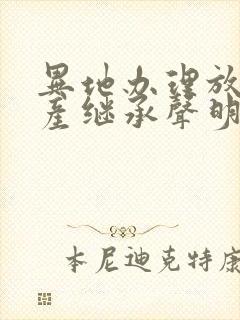 異地办理放
産继承聲明
本尼迪克特康